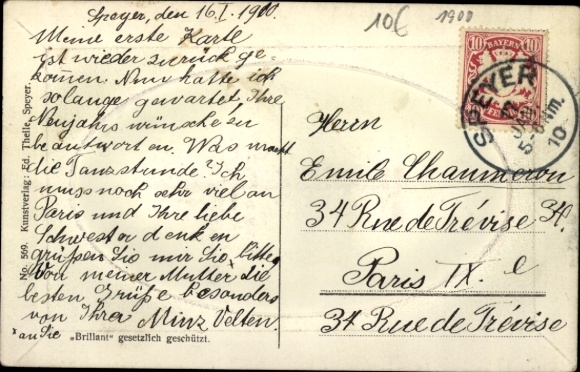 Speyer, den 16.I.1900.
10€ 1900
Meine erste Karte
ist wieder zurück ge-
kommen. Nun hatte ich
so lange gewartet Ihre
Neujahrswünsche zu
beantworten. Was macht
die Tanzstunde? Ich
muss noch sehr viel an
Paris und Ihre liebe
Schwester denken
grüßen Sie mir Sie, bitte,
Von meiner Mutter die
besten Grüße besonders
von Ihrer Minz Velten.
x an Sie
"Brillant" gesetzlich geschützt.
No. 569. Kunstverlag: Ed. Theile, Speyer.
10 BAYERN 10
SPEYER
5-6 Nm.
10
Herrn
Emile Chaumeron
34 Rue de Trévise 34.
Paris IX. e
34 Rue de Trévise